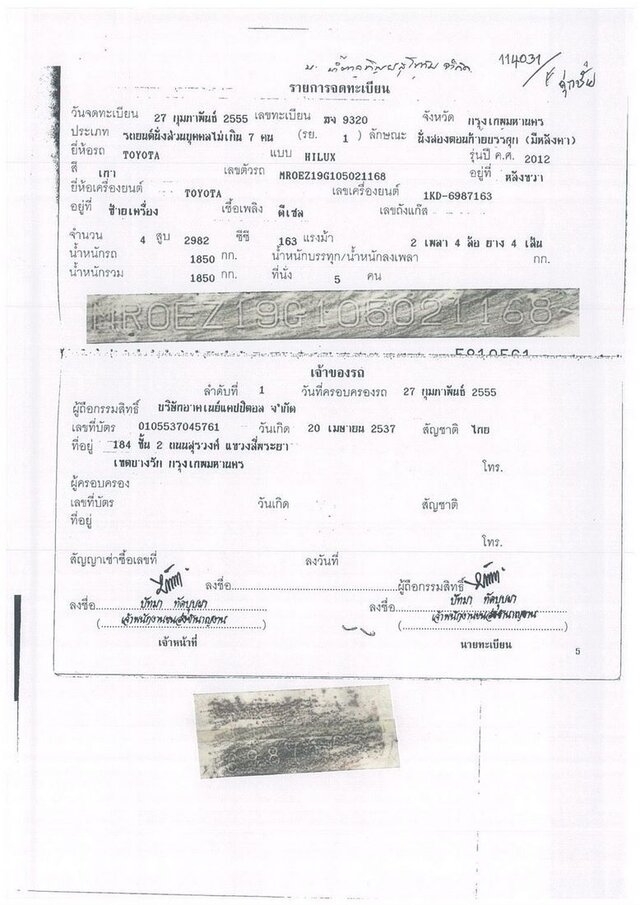 114031
รายการจดทะเบียน
วันจดทะเบียน 27 กุมภาพันธ์ 2555 เลขทะเบียน ฆจ 9320 จังหวัด กรุงเทพมหานคร
ประเภท รถยนต์นั่งส่วนบุคคลไม่เกิน 7 คน (รย. 1 ) ลักษณะ นั่งสองตอนท้ายบรรทุก (มีหลังคา)
ยี่ห้อรถ TOYOTA แบบ HILUX รุ่นปี ค.ศ. 2012
สี เทา เลขตัวรถ MROEZ19G105021168 อยู่ที่ หลังขวา
ยี่ห้อเครื่องยนต์ TOYOTA เลขเครื่องยนต์ 1KD-6987163
อยู่ที่ ซ้ายเครื่อง เชื้อเพลิง ดีเซล เลขถังแก๊ส
จำนวน 4 สูบ 2982 ซีซี 163 แรงม้า 2 เพลา 4 ล้อ ยาง 4 เส้น
น้ำหนักรถ 1850 กก. น้ำหนักบรรทุก/น้ำหนักลงเพลา กก.
น้ำหนักรวม 1850 กก. ที่นั่ง 5 คน
MROEZ19G105021168
เจ้าของรถ
ลำดับที่ 1 วันที่ครอบครองรถ 27 กุมภาพันธ์ 2555
ผู้ถือกรรมสิทธิ์ บริษัทอาคเนย์แคปปิตอล จำกัด
เลขที่บัตร 0105537045761 วันเกิด 20 เมษายน 2537 สัญชาติ ไทย
ที่อยู่ 184 ชั้น 2 ถนนสุรวงศ์ แขวงสี่พระยา
เขตบางรัก กรุงเทพมหานคร โทร.
ผู้ครอบครอง
เลขที่บัตร วันเกิด สัญชาติ
ที่อยู่
โทร.
สัญญาเช่าซื้อเลขที่ ลงวันที่
ลงชื่อ ผู้ถือกรรมสิทธิ์
ลงชื่อ ปัทมา ทัดบุบผา ลงชื่อ ปัทมา ทัดบุบผา
(เจ้าพนักงานขนส่งชำนาญงาน) (เจ้าพนักงานขนส่งชำนาญงาน)
เจ้าหน้าที่ นายทะเบียน
5